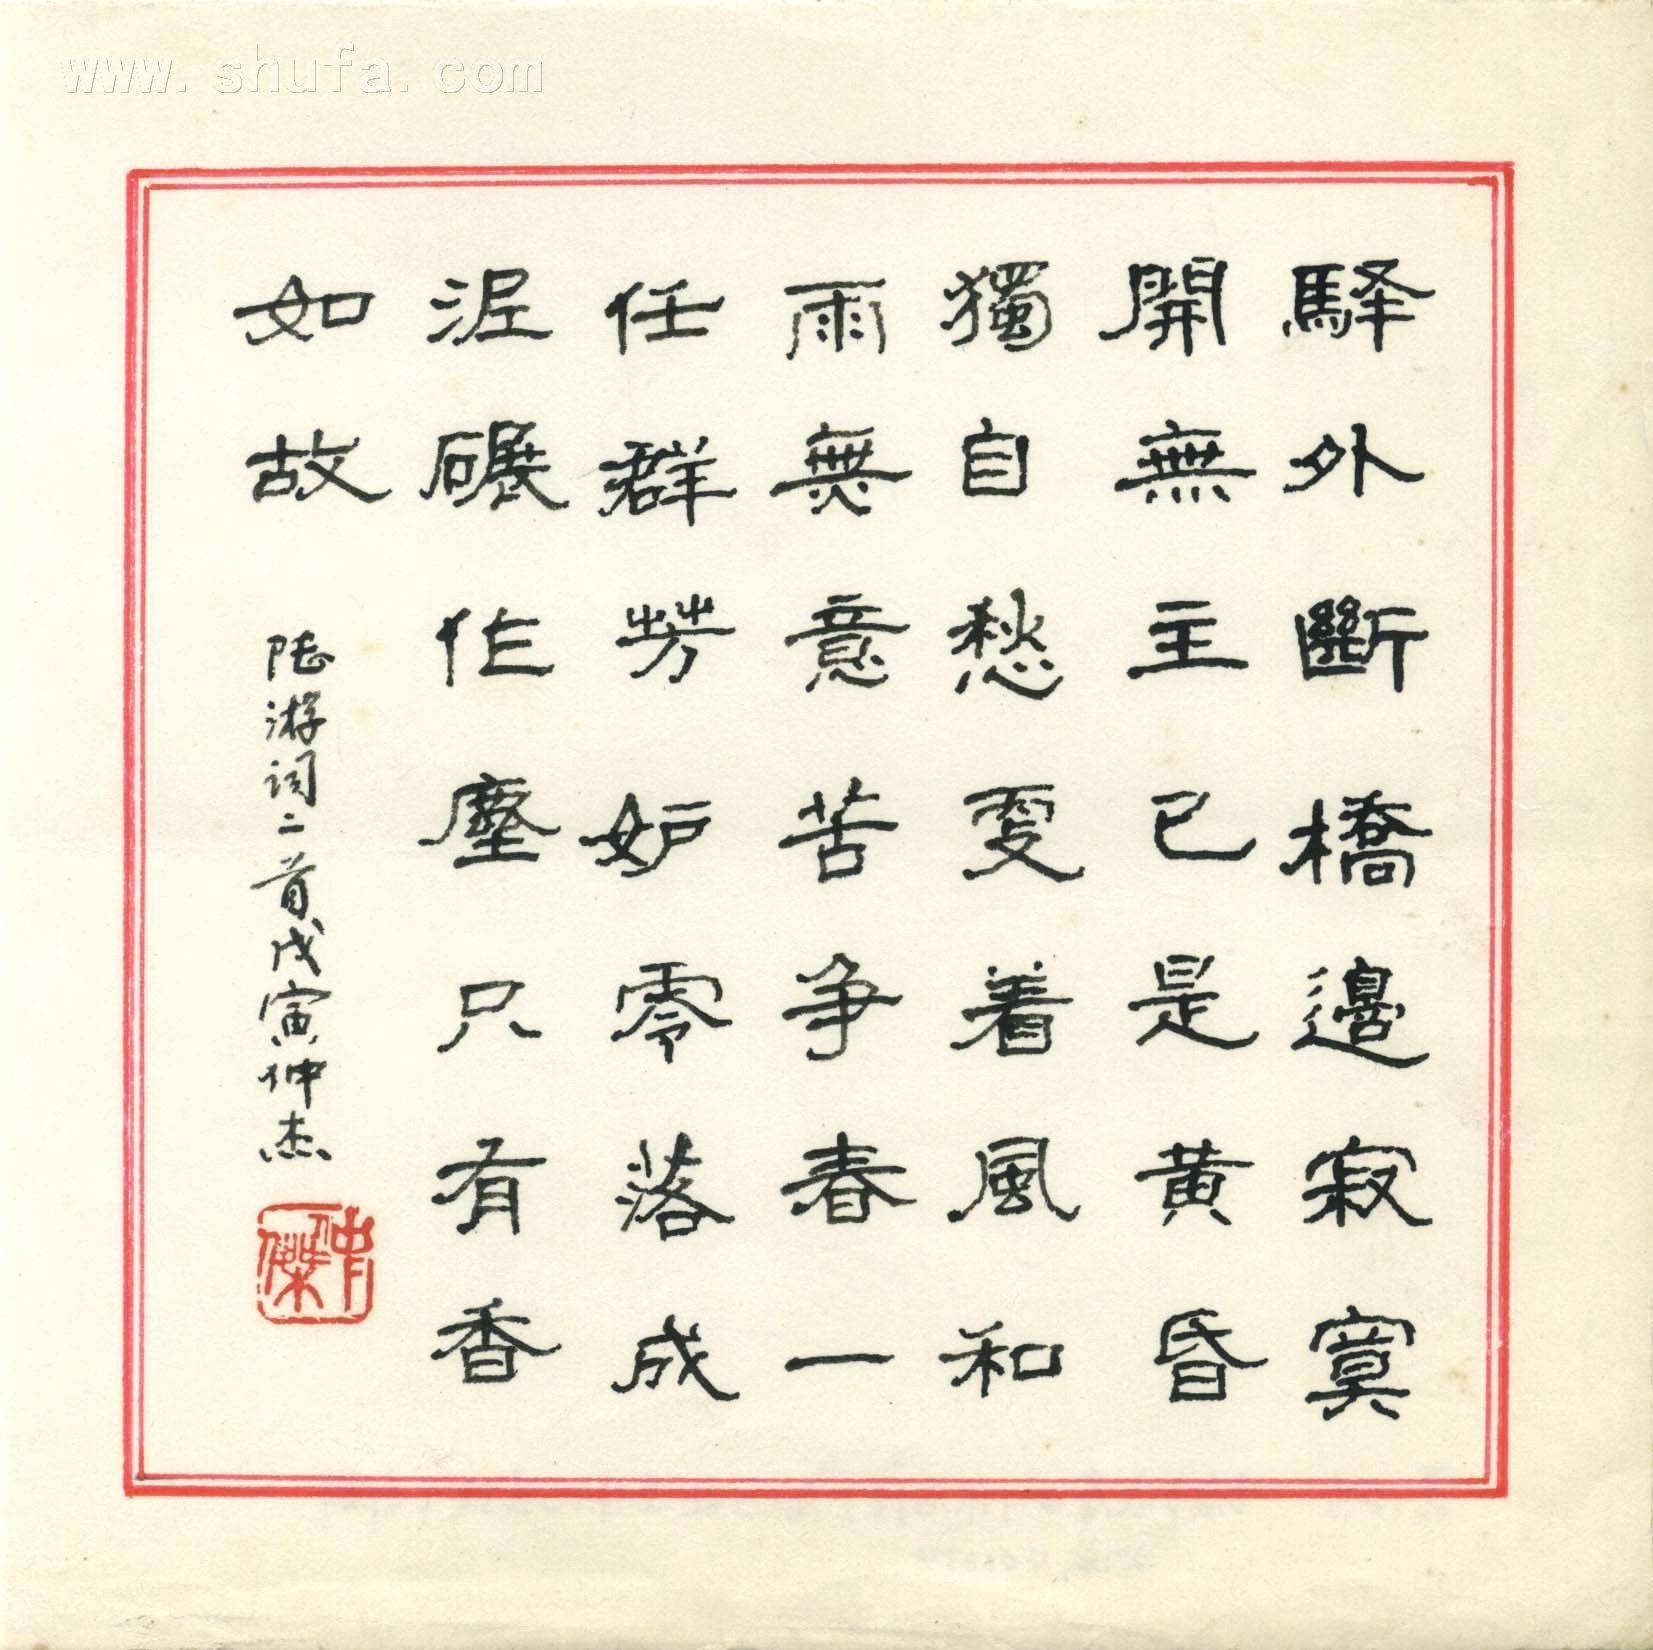 www.shufa.com
驛外斷橋邊寂寞
開無主已是黄昏
獨自愁更着風和
雨無意苦爭春一
任群芳妒零落成
泥碾作塵只有香
如故
陸游词二首戊寅仲杰
仲傑